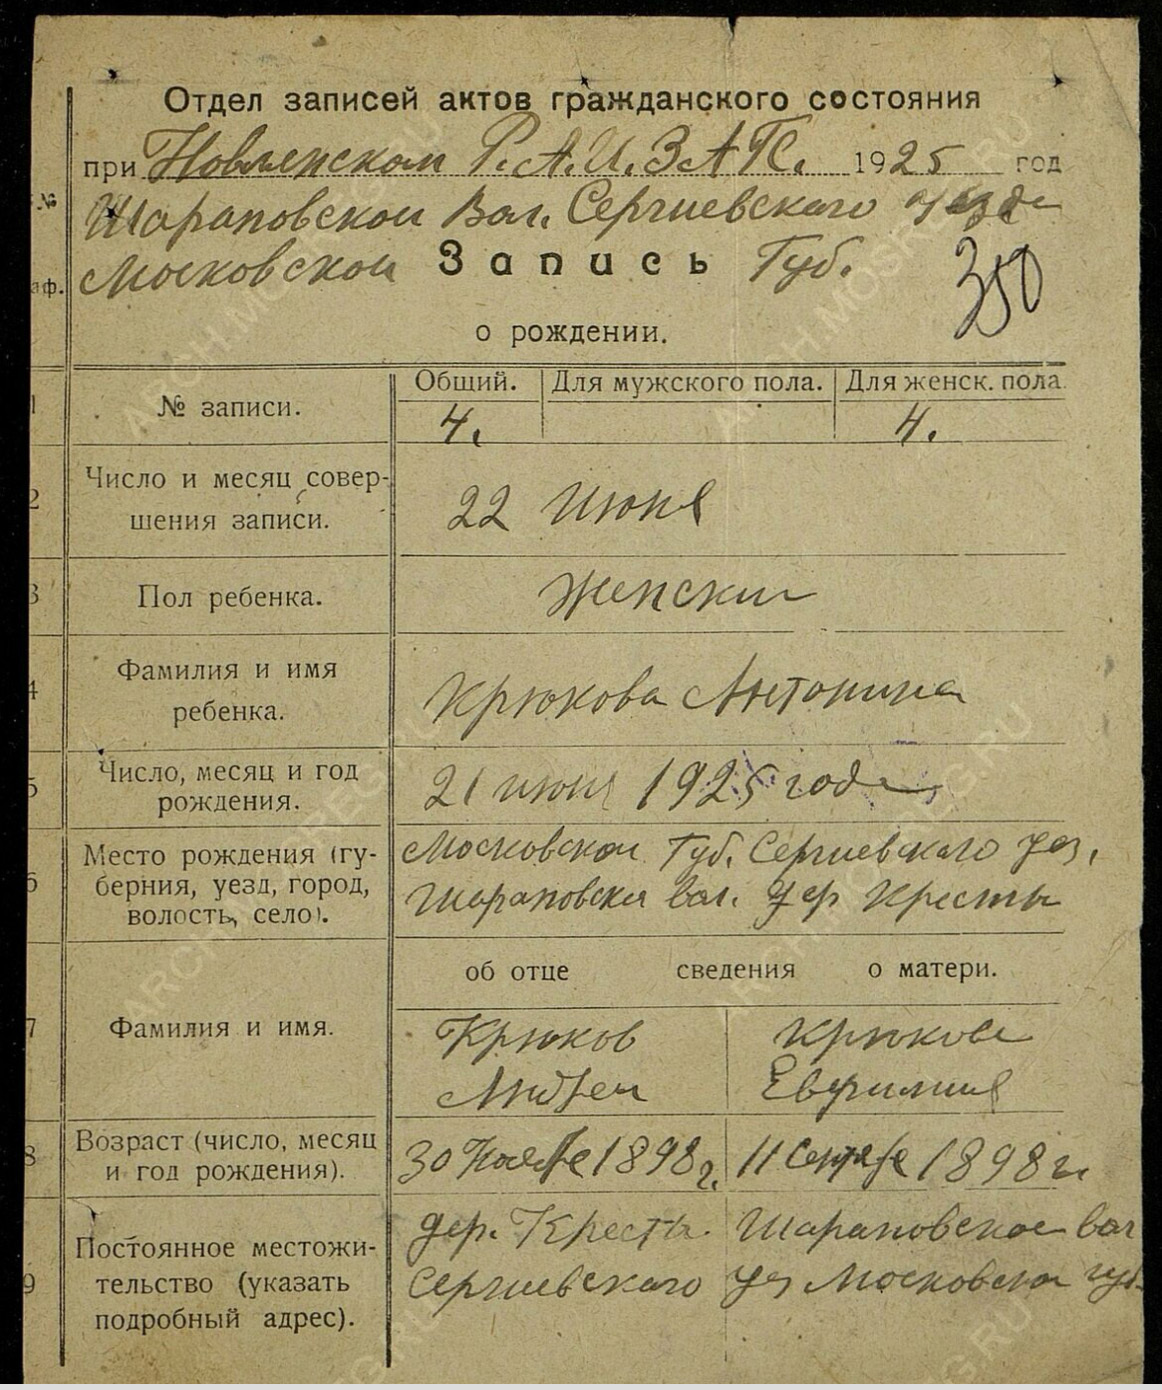 Отдел записей актов гражданского состояния
при Новленском Р.А.И.З.А.Г.С. 1925 год
№ Шараповской Вол. Сергиевского уезда
аф. Московской Запись Губ. 350
о рождении.
Общий. Для мужского пола. Для женск. пола.
1 № записи. 4. 4.
2 Число и месяц совер-
шения записи. 22 Июня
3 Пол ребенка. Женский
4 Фамилия и имя
ребенка. Крюкова Антонина
5 Число, месяц и год
рождения. 21 июня 1925 года
6 Место рождения (гу-
берния, уезд, город,
волость, село). Московской Губ. Сергиевского уез.
Шараповская вол. дер Кресты
об отце сведения о матери.
7 Фамилия и имя. Крюков Крюкова
Андрей Евфимия
8 Возраст (число, месяц
и год рождения). 30 1898 г. 11 1898 г.
9 Постоянное местожи-
тельство (указать
подробный адрес). дер. Кресты. Шараповское вол
Сергиевского уез Московской губ.
ARCH.MOSREG.RU